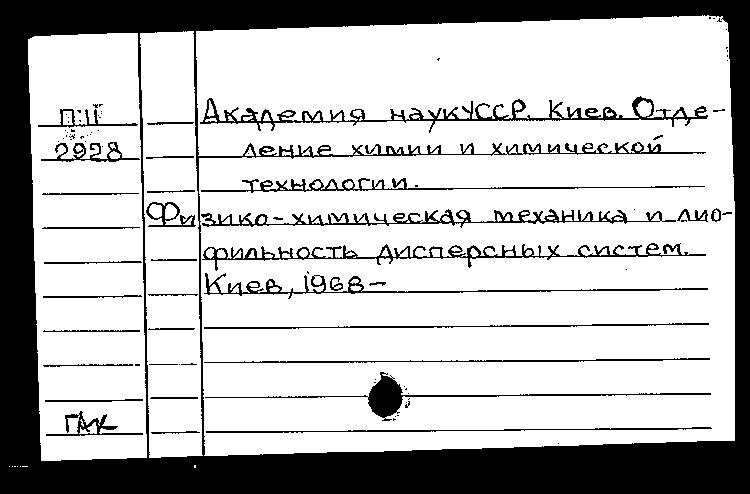 П:II
Академия наук УССР. Киев. Отде-
2928
ление химии и химической
технологии.
Физико-химическая механика и лио-
фильность дисперсных систем.
Киев, 1968-
ГАК